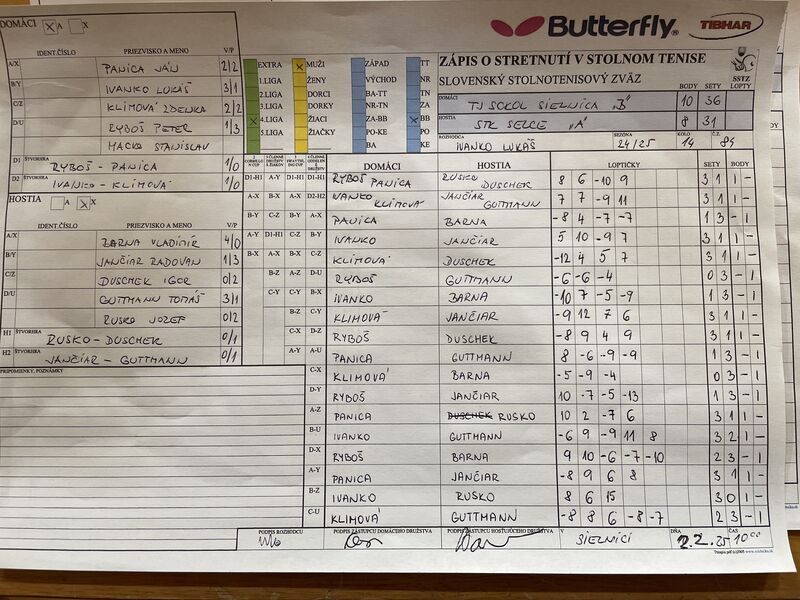 DOMÁCI X A X
Butterfly. TIBHAR
ZÁPIS O STRETNUTÍ V STOLNOM TENISE
SLOVENSKÝ STOLNOTENISOVÝ ZVÄZ
SSTZ
BODY SETY LOPTY
DOMÁCI TJ SOKOL SIELNICA "B" 10 36
HOSTIA STK SELCE "A" 8 31
ROZHODCA IVANKO LUKÁŠ SEZÓNA 24/25 KOLO 14 Č.Z. 84
IDENT.ČÍSLO PRIEZVISKO A MENO V/P
A/X PANICA JÁN 2/2
B/Y IVANKO LUKÁŠ 3/1
C/Z KLIMOVÁ ZDENKA 2/2
D/U RYBOŠ PETER 1/3
MACKO STANISLAV
D1 ŠTVORHRA RYBOŠ - PANICA 1/0
D2 ŠTVORHRA IVANKO - KLIMOVÁ 1/0
EXTRA X MUŽI ZÁPAD TT
1.LIGA ŽENY VÝCHOD NR
2.LIGA DORCI BA-TT TN
3.LIGA DORKY NR-TN ZA
X 4.LIGA ŽIACI ZA-BB X BB
5.LIGA ŽIAČKY PO-KE PO
BA KE
HOSTIA A X X
IDENT.ČÍSLO PRIEZVISKO A MENO V/P
A/X BARNA VLADIMÍR 4/0
B/Y JANČIAR RADOVAN 1/3
C/Z DUSCHEK IGOR 0/2
D/U GUTTMANN TOMÁŠ 3/1
RUSKO JOZEF 0/2
H1 ŠTVORHRA RUSKO - DUSCHEK 0/1
H2 ŠTVORHRA JANČIAR - GUTTMANN 0/1
PRIPOMIENKY, POZNÁMKY
DOMÁCI HOSTIA LOPTIČKY SETY BODY
D1-H1 A-Y D1-H1 D1-H1 RYBOŠ PANICA RUSKO DUSCHEK 8 6 -10 9 3 1 1 -
A-X B-X A-X D2-H2 IVANKO KLIMOVÁ JANČIAR GUTTMANN 7 7 -9 11 3 1 1 -
B-Y C-Z B-Y A-X PANICA BARNA -8 4 -7 -7 1 3 - 1
A-Y D1-H1 C-Z B-Y IVANKO JANČIAR 5 10 -9 7 3 1 1 -
B-X A-X B-X C-Z KLIMOVÁ DUSCHEK -12 4 5 7 3 1 1 -
B-Z A-Z D-U RYBOŠ GUTTMANN -6 -6 -4 0 3 - 1
C-Y C-Y B-X IVANKO BARNA -10 7 -5 -9 1 3 - 1
B-Z C-Y KLIMOVÁ JANČIAR -9 12 7 6 3 1 1 -
C-X D-Z RYBOŠ DUSCHEK -8 9 4 9 3 1 1 -
A-Y A-U PANICA GUTTMANN 8 -6 -9 -9 1 3 - 1
C-X KLIMOVÁ BARNA -5 -9 -4 0 3 - 1
D-Y RYBOŠ JANČIAR 10 -7 -5 -13 1 3 - 1
A-Z PANICA DUSCHEK RUSKO 10 2 -7 6 3 1 1 -
B-U IVANKO GUTTMANN -6 9 -9 11 8 3 2 1 -
D-X RYBOŠ BARNA 9 10 -6 -7 -10 2 3 - 1
A-Y PANICA JANČIAR -8 9 6 8 3 1 1 -
B-Z IVANKO RUSKO 8 6 15 3 0 1 -
C-U KLIMOVÁ GUTTMANN -8 8 6 -8 -7 2 3 - 1
PODPIS ROZHODCU PODPIS ZÁSTUPCU DOMÁCEHO DRUŽSTVA PODPIS ZÁSTUPCU HOSŤUJÚCEHO DRUŽSTVA V SIELNICI DŇA 2.2.25 ČAS 10:00